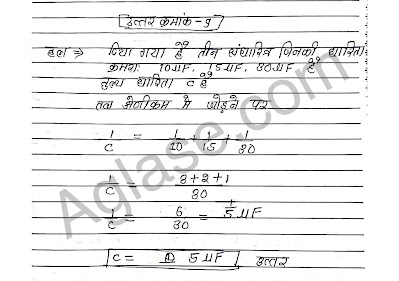 उत्तर क्रमांक - 9
हल ⇒ दिया गया है तीन संधारित्र जिनकी धारिता
क्रमशः 10μF, 15μF, 30μF है
तुल्य धारिता C है
तब श्रेणीक्रम में जोड़ने पर
1/C = 1/10 + 1/15 + 1/30
1/C = 3+2+1/30
1/C = 6/30 = 1/5 μF
C = 5 μF उत्तर
Aglase.com